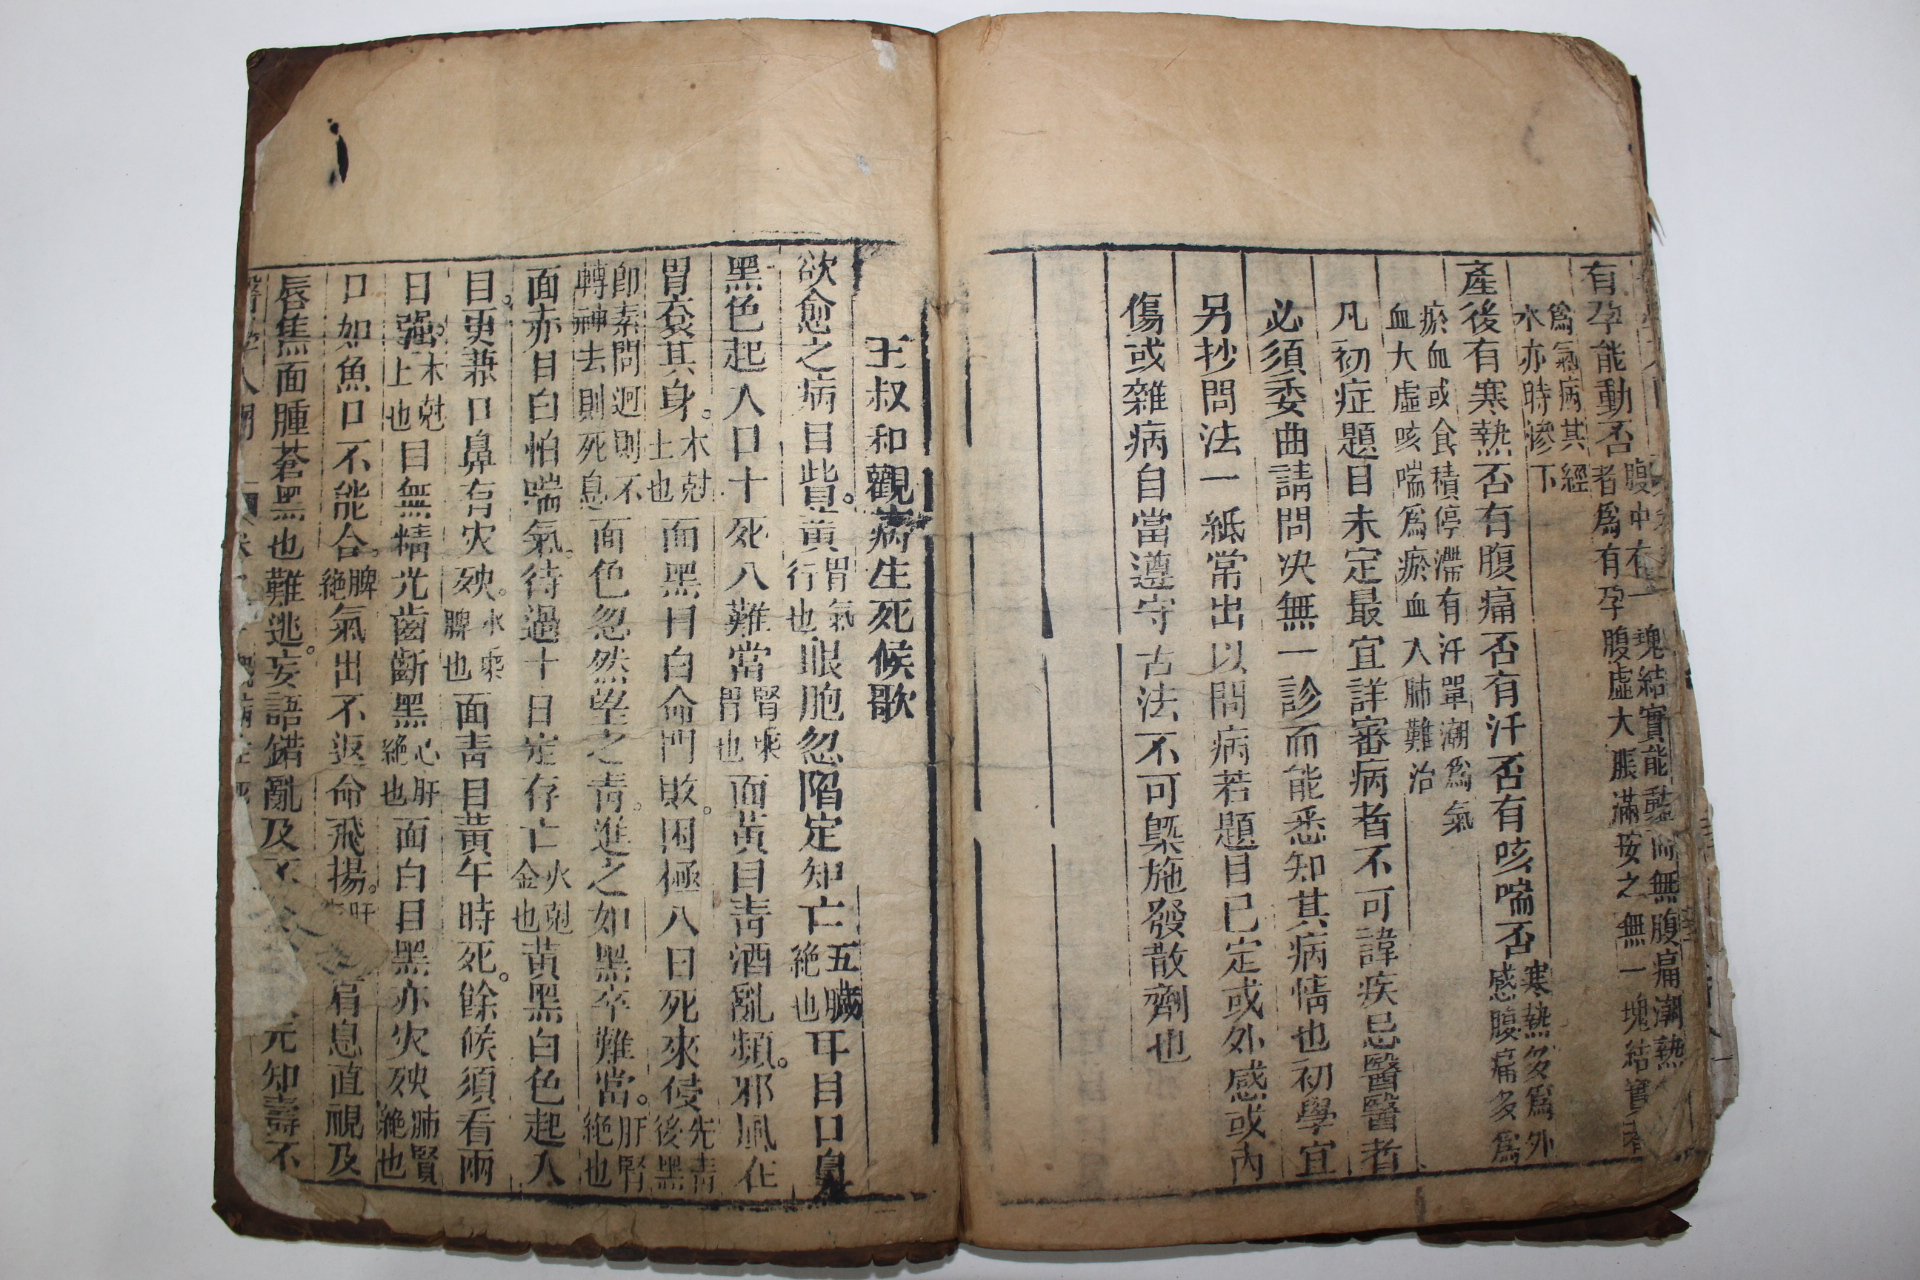 有孕能動否腹中有一塊結實能動而無腹痛潮熱
者爲有孕腹虛大脹滿按之無一塊結實者
爲氣病其經
水亦時滲下
產後有寒熱否有腹痛否有汗否有咳喘否寒熱多爲外
感腹痛多爲
瘀血或食積停滯有汗單潮爲氣
血大虛咳喘爲瘀血入肺難治
凡初症題目未定最宜詳審病者不可諱疾忌醫醫者
必須委曲請問决無一診而能悉知其病情也初學宜
另抄問法一紙常出以問病若題目已定或外感或內
傷或雜病自當遵守古法不可槩施發散劑也
王叔和觀病生死候歌
欲愈之病目眥黃胃氣行也眼胞忽陷定知亡五臟絶也耳目口鼻
黑色起入口十死八難當腎乘胃也面黃目靑酒亂頻邪風在
胃衮其身木尅土也面黑目白命門敗困極八日死來侵先靑後黑
卽素問迴則不轉神去則死息面色忽然望之靑進之如黑卒難當肝腎絶也
面赤目白怕喘氣待過十日定存亡火尅金也黃黑白色起入
目更兼口鼻有灾殃水乘脾也面靑目黃午時死餘候須看兩
日强木尅土也目無精光齒齗黑心肝絶也面白目黑亦灾殃肺腎絶也
口如魚口不能合脾絶氣出不返命飛揚肝肩息直視及
唇焦面腫蒼黑也難逃妄語錯亂及不元知壽不